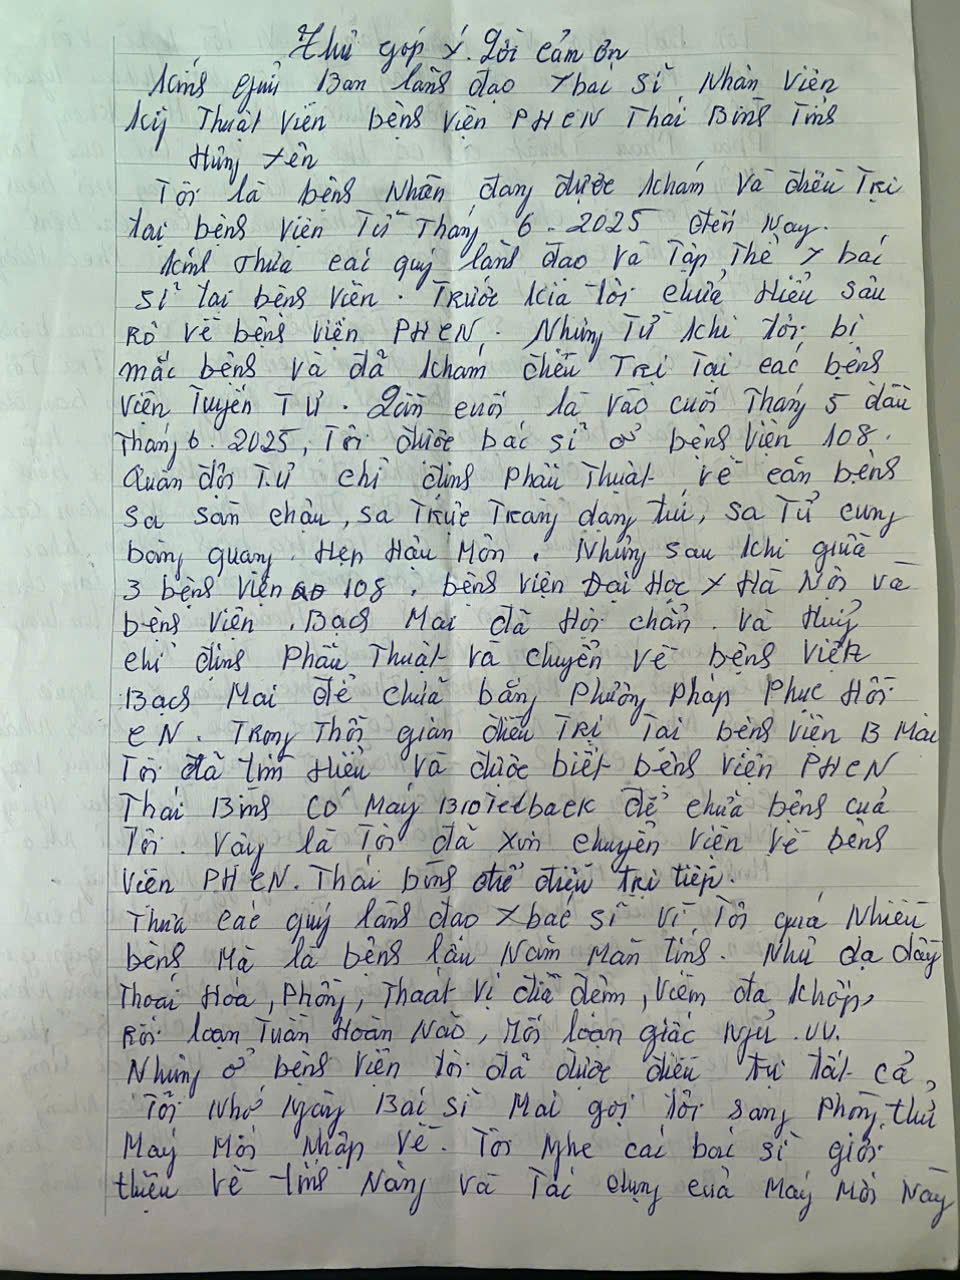 Thư góp ý. Lời cảm ơn
Kính gửi Ban lãnh đạo Y bác sĩ Nhân Viên
Kỹ Thuật Viên bệnh Viện PHCN Thái Bình Tỉnh
Hưng Yên
Tôi là bệnh Nhân đang được Khám Và điều Trị
tại bệnh Viện Từ Tháng 6.2025 Đến Nay.
Kính thưa các quý lãnh đạo và Tập Thể Y bác
sĩ tại bệnh Viện. Trước Kia tôi chưa Hiểu Sâu
Rõ về bệnh viện PHCN. Nhưng Từ Khi tôi bị
mắc bệnh và đã Khám điều Trị Tại các bệnh
Viện Tuyến TƯ. Lần cuối là vào cuối Tháng 5 đầu
Tháng 6.2025, Tôi được bác sĩ ở bệnh Viện 108.
Quân đội TƯ chỉ định Phẫu Thuật về căn bệnh
Sa sàn chậu, sa Trực Tràng dạng túi, sa Tử cung
bàng quang, Hẹp Hậu Môn. Nhưng sau Khi giữa
3 bệnh viện 108, bệnh viện Đại Học Y Hà Nội và
bệnh Viện Bạch Mai đã Hội chẩn. và Huỷ
chỉ định Phẫu Thuật và chuyển về bệnh Viện
Bạch Mai để chữa bằng Phương Pháp Phục Hồi
CN. Trong Thời gian điều Trị Tại bệnh viện B Mai
Tôi đã tìm Hiểu và được biết bệnh viện PHCN
Thái Bình Có Máy Biofeedback để chữa bệnh của
Tôi. Vậy là Tôi đã xin chuyển Viện Về bệnh
Viện PHCN. Thái bình để điều trị tiếp.
Thưa các quý lãnh đạo Y bác sĩ vì Tôi quá Nhiều
bệnh Mà là bệnh lâu Năm Mãn tính. Như dạ dầy
Thoái Hoá, Phồng, Thoát vị đĩa đệm, Viêm đa Khớp,
Rối loạn Tuần Hoàn Não, Rối loạn giấc Ngủ. VV.
Nhưng ở bệnh Viện tôi đã được điều trị tất cả,
Tôi Nhớ Ngày Bác sĩ Mai gọi tôi sang Phòng thử
Máy Mới Nhập Về. Tôi Nghe các bác sĩ giới
thiệu Về tính Năng và Tác dụng của Máy Mới Này